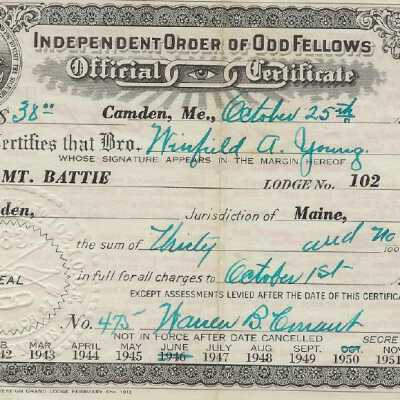 INDEPENDENT ORDER OF ODD FELLOWS
Official Certificate
38 00 Camden, Me., October 25th
Certifies that Bro. Winfield A. Young.
WHOSE SIGNATURE APPEARS IN THE MARGIN HEREOF
MT. BATTIE LODGE No. 102
den, Jurisdiction of Maine,
the sum of Thirty and no
100
EAL in full for all charges to October 1st
EXCEPT ASSESSMENTS LEVIED AFTER THE DATE OF THIS CERTIFICA
No. 475 Warren B. Conant
NOT IN FORCE AFTER DATE CANCELLED SECRE
B. MAR APRIL MAY JUNE JULY AUG. SEPT. OCT. NOV
42 1943 1944 1945 1946 1947 1948 1949 1950 1951